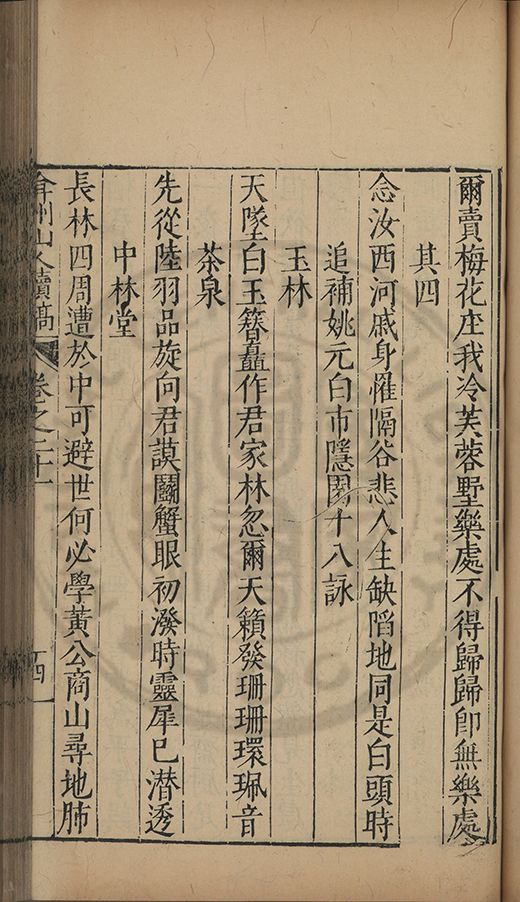 爾賣梅花庄我冷芙蓉墅樂處不得歸歸卽無樂處
其四
念汝西河戚身罹隔谷悲人生缺陷地同是白頭時
追補姚元白市隱園十八詠
玉林
天墜白玉簪矗作君家林忽爾天籟發珊珊環珮音
茶泉
先從陸羽品旋向君謨鬭蟹眼初潑時靈犀已潛透
中林堂
長林四周遭於中可避世何必學黃公商山尋地肺
弇州山人續稿 卷之二十一 十四